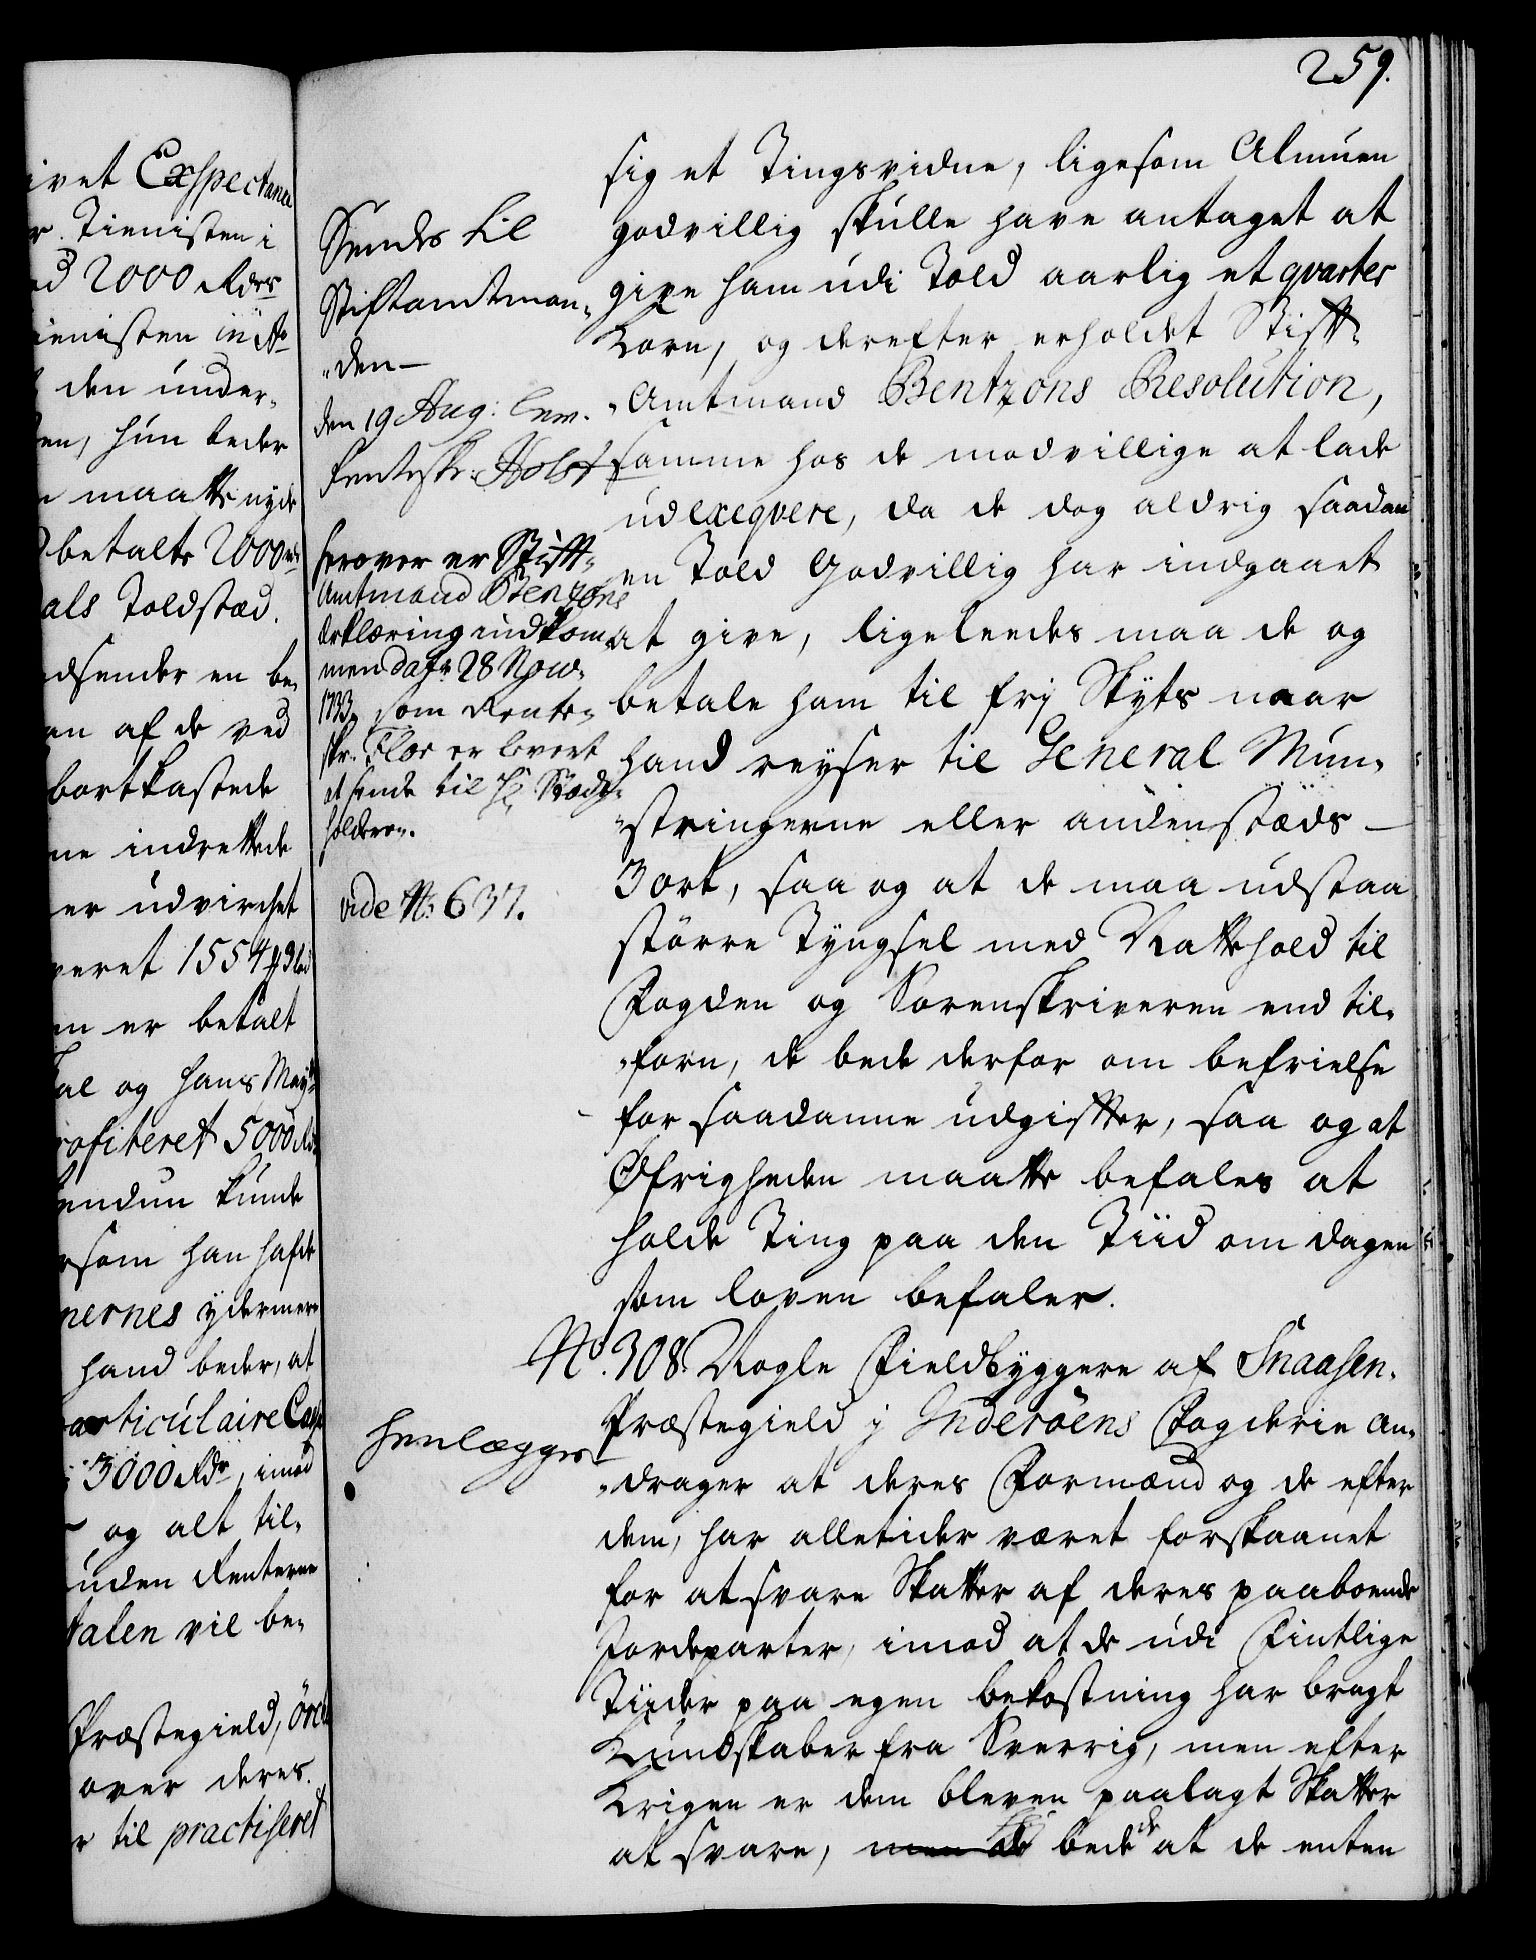 259.
ivet Exspectance
r. Tienisten i
ed 2000 Rdrs
ienisten in A
den under,
en, hun beder
maatte nyde
betalte 2000 rd
als Toldstæd.
dsender en be,
an af de ved
bortkastede
ne indrettede
er udvirchet
veret 1554
en er betalt
al og hans May
rofiteret 5000 Rd
endun kunde
rsom han hafde
nernes ydermere
hand beder, at
articulaire Cassa
3000 Rdr, imod
og alt til,
uden Renterne
talen vil be,
Præstegield,
over deres
r til practiseret
Sendes til
Stiftamtman,
"den —
den 19 Aug: lev.
Renteskr: Holst
herover er Stift,
Amtmand Bentzons
Erklæring indkom,
men daft 28 Nov.
1733, som Rente,
skr. Flor er levert
at sende til H: Stadt,
holderen.
vide No 637.
Henlægges
sig et Tingsvidne, ligesom Almuen
godvillig skulle have antaget at
give ham udi Told aarlig et qvarter
Korn, og derefter erholdet Stift,
"Amtmand Bentzons Resolution,
samme hos de modvillige at lade
udexeqvere, da de dog aldrig saadan
en Told Godvillig har indgaaet
at give, ligeleedes maa de og
betale ham til frj Skyts naar
hand reyser til General Mun,
"stringerne eller andenstæds —
3 ort, saa og at de maa udstaa
större Tyngsel med Nattehold til
Fogden og Sorenskriveren end til,
"forn, de bede derfor om befrielse
for saadanne udgifter, saa og at
Øfrigheden maatte befales at
holde Ting paa den Tiid om dagen
som loven befaler.
No. 308. Nogle Fieldbyggere af Snaasen,
Præstegield j Inderöens Fogderie an,
"drager at deres Formænd og de efter
dem, har alletider været forskaanet
for at svare Skatter af deres paaboende
Jordeparter, imod at de udi Fintlige
Tiider paa egen bekostning har bragt
Kundskaber fra Sverrig, men efter
Krigen er dem bleven paalagt Skatter
at svare, men de bede de at de enten